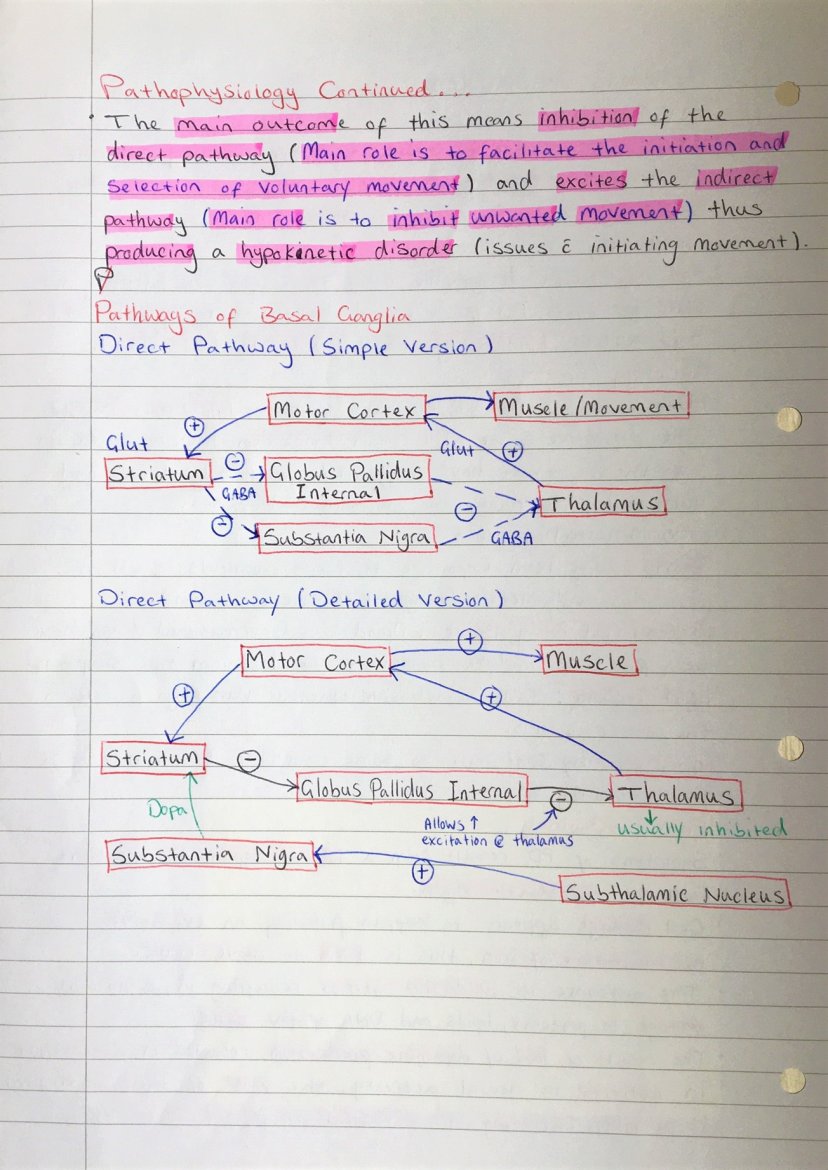 Pathophysiology Continued...
• The main outcome of this means inhibition of the
direct pathway (Main role is to facilitate the initiation and
Selection of voluntary movement) and excites the indirect
pathway (Main role is to inhibit unwanted movement) thus
producing a hypokinetic disorder (issues c̄ initiating movement).
Pathways of Basal Ganglia
Direct Pathway (Simple Version)
Motor Cortex
Muscle/Movement
+
Glut
Glut
+
Striatum
-
GABA
Globus Pallidus
Internal
-
Thalamus
-
Substantia Nigra
GABA
Direct Pathway (Detailed Version)
+
Motor Cortex
Muscle
+
+
Striatum
-
Globus Pallidus Internal
-
Thalamus
Dopa
Allows ↑
excitation @ thalamus
usually inhibited
Substantia Nigra
+
Subthalamic Nucleus